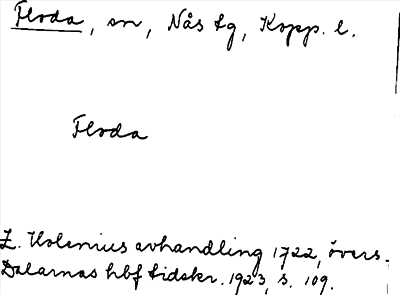 Floda, sn, Nås tg, Kopp. l.
Floda
Z. Holenius avhandling 1722, övers.
Dalarnas hbf tidskr. 1923, s. 109.